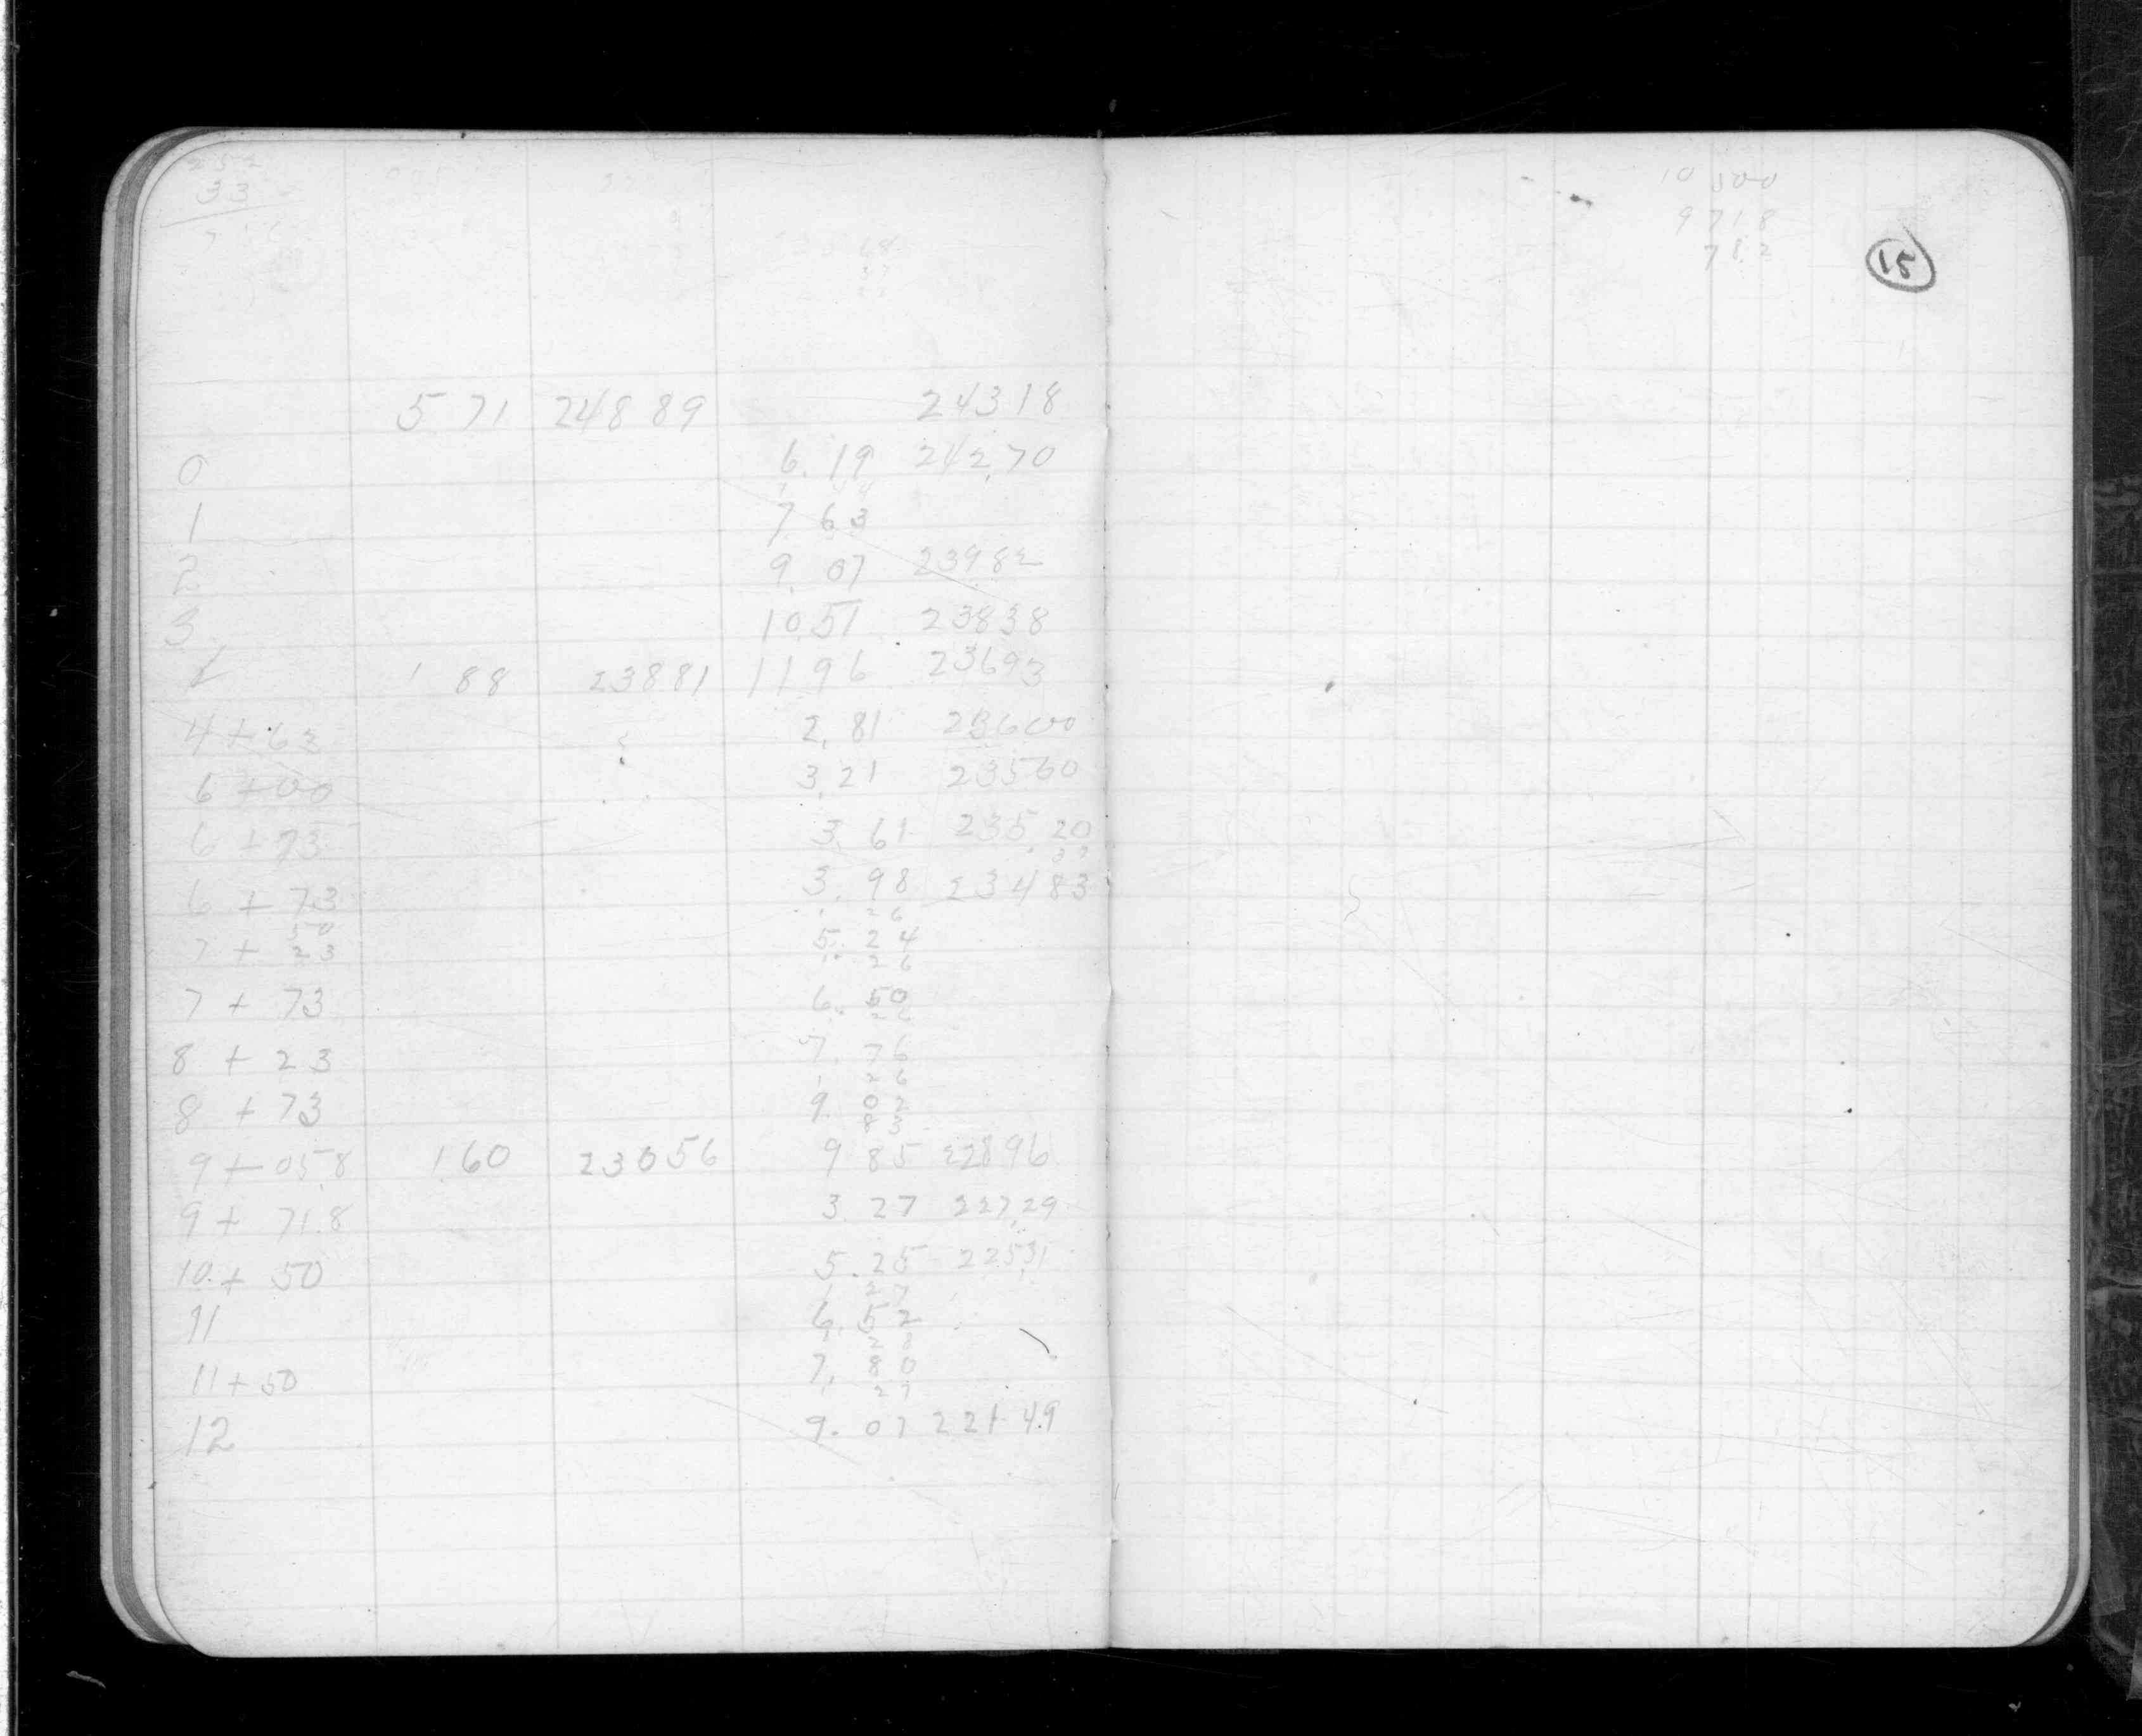 33
5 71 248 89 243 18
0 6.19 242.70
1 7 63
2 9. 07 239 82
3 10.51 238 38
1 88 238 81 11 96 236 93
4 + 63 2.81 236 00
6 + 00 3.21 235 60
6 + 73 3.61 235.20
37
6 + 73 3.98 234 83
1 26
50
7 + 23 5.24
1 26
7 + 73 6.50
1 26
8 + 23 7.76
1 26
8 + 73 9.02
83
9 + 05.8 1 60 230 56 9 85 228 96
9 + 71.8 3 27 227.29
10 + 50 5.25 225 31
1 27
11 6.52
1 28
11 + 50 7.80
1 27
12 9.07 221 49
10 500
9 718
782
15